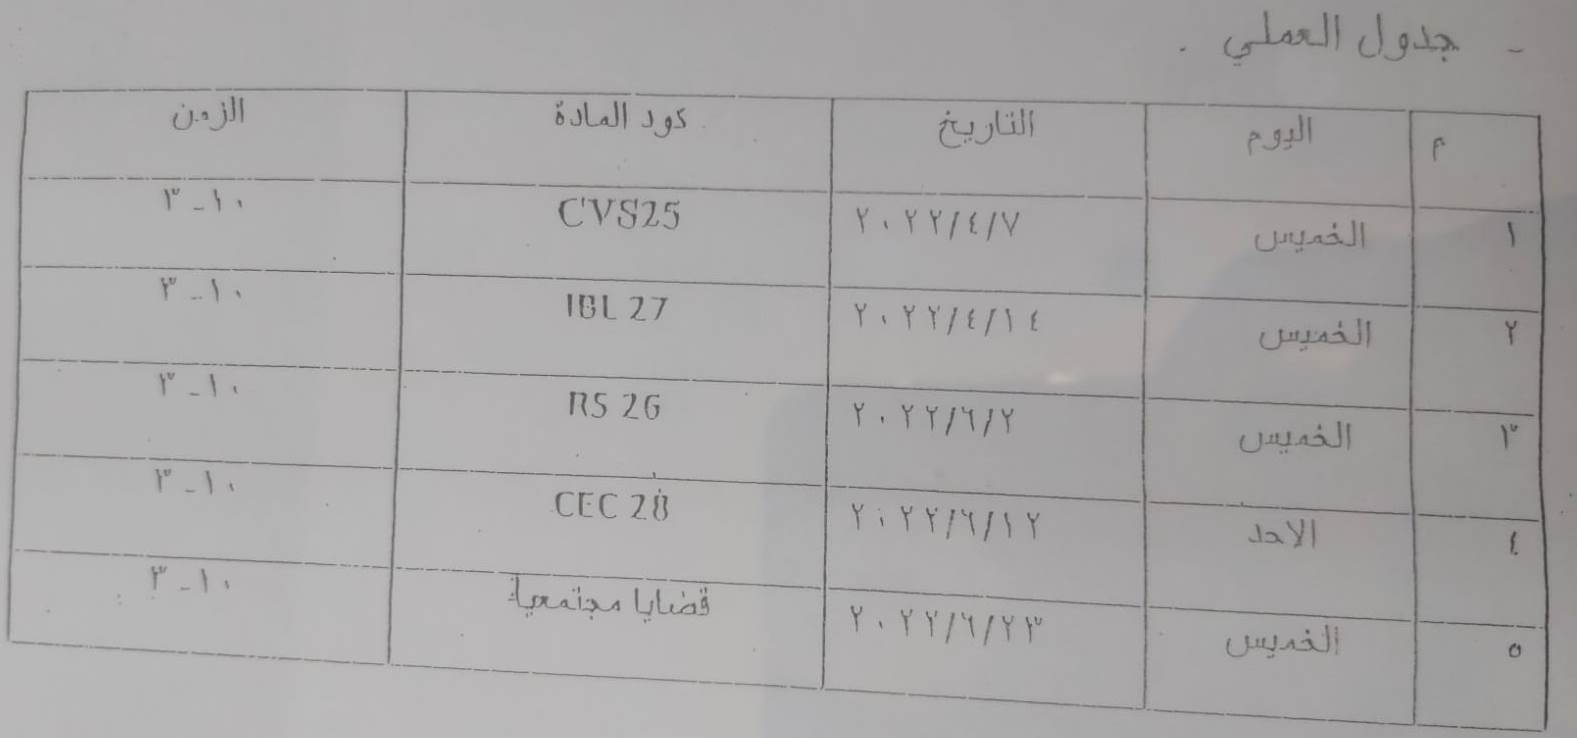 - جدول العملي .
م اليوم التاريخ كود المادة الزمن
١ الخميس ٢٠٢٢/٤/٧ CVS25 ١٠-٣
٢ الخميس ٢٠٢٢/٤/١٤ IBL 27 ١٠-٣
٣ الخميس ٢٠٢٢/٦/٢ RS 26 ١٠-٣
٤ الاحد ٢٠٢٢/٦/١٢ CEC 28 ١٠-٣
٥ الخميس ٢٠٢٢/٦/٢٣ قضايا مجتمعية ١٠-٣